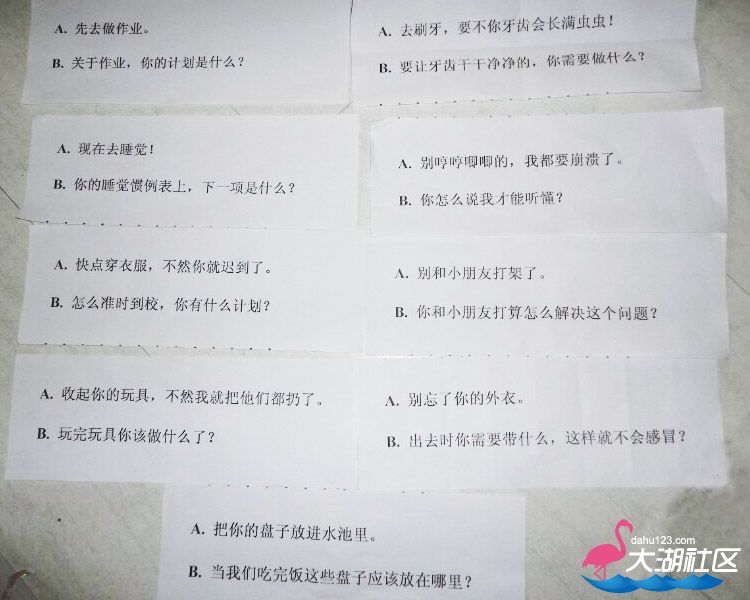 A. 先去做作业。
B. 关于作业，你的计划是什么？
A. 去刷牙，要不你牙齿会长满虫虫！
B. 要让牙齿干干净净的，你需要做什么？
A. 现在去睡觉！
B. 你的睡觉惯例表上，下一项是什么？
A. 别哼哼唧唧的，我都要崩溃了。
B. 你怎么说我才能听懂？
A. 快点穿衣服，不然你就迟到了。
B. 怎么准时到校，你有什么计划？
A. 别和小朋友打架了。
B. 你和小朋友打算怎么解决这个问题？
A. 收起你的玩具，不然我就把他们都扔了。
B. 玩完玩具你该做什么了？
A. 别忘了你的外衣。
B. 出去时你需要带什么，这样就不会感冒？
A. 把你的盘子放进水池里。
B. 当我们吃完饭这些盘子应该放在哪里？
dahu123.com
大湖社区